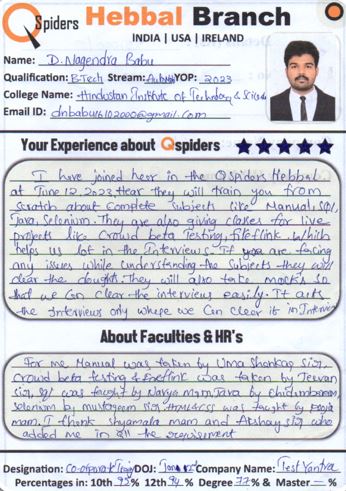 Qspiders Hebbal Branch
INDIA | USA | IRELAND
Name: D. Nagendra Babu
Qualification: B.Tech Stream: YOP: 2023
College Name: Hindustan Institute of Technology & Science
Email ID: dnbabu16102000@gmail.com
Your Experience about Qspiders
I have joined heer in the Qspiders Hebbal
at June 12, 2023 Hear they will train you from
scratch about Complete Subjects like Manual, SQl,
Java, Selenium. They are also giving classes for live
projects like Crowd beta Testing, fileflink. Which
helps us lot in the Interviews. If you are facing
any issues while understanding the Subjects they will
clear the dought. They will also take mocks So
that we Can clear the interviews easily. It acts
the Interviews only where we Can clear it in Interview
About Faculties & HR's
For me Manual was taken by Uma Shankar Sir,
Crowd beta testing & was taken by Jeevan
Sir, Sql was taught by Navya mam, Java by Chidambaram,
Selenium by mustaqeem Sir, HTML&CSS was taught by
mam. I thank Shyamala mam and Akshay Sir who
added me in all the requirement
Designation: DOJ: Company Name: Test Yantra
Percentages in: 10th 95% 12th 94% Degree 77% & Master — %